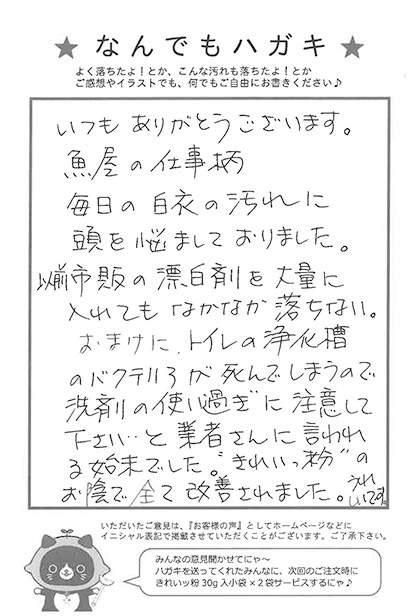 ★ なんでもハガキ ★
よく落ちたよ!とか、こんな汚れも落ちたよ!とか
ご感想やイラストでも、何でもご自由にお書きください♪
いつもありがとうございます。
魚屋の仕事柄
毎日の白衣の汚れに
頭を悩ましておりました。
以前市販の漂白剤を大量に
入れてもなかなか落ちない。
おまけに、トイレの浄化槽
のバクテリアが死んでしまうので
洗剤の使い過ぎに注意して
下さい…と業者さんに言われ
る始末でした。"きれいっ粉"の
お陰で全て改善されました。うれしいです。
いただいたご意見は、『お客様の声』としてホームページなどに
イニシャル表記で掲載させていただくことがございます。ご了承下さい。
みんなの意見聞かせてにゃ〜
ハガキを送ってくれたみんなに、次回のご注文時に
きれいッ粉 30g 入小袋×2袋サービスするにゃ♪